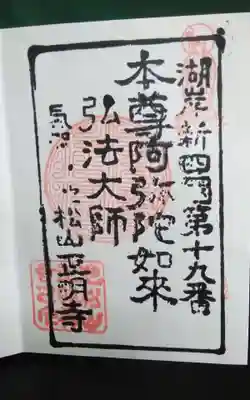 湖岸新四国第十九番
本尊阿弥陀如来
弘法大師
松山正明寺